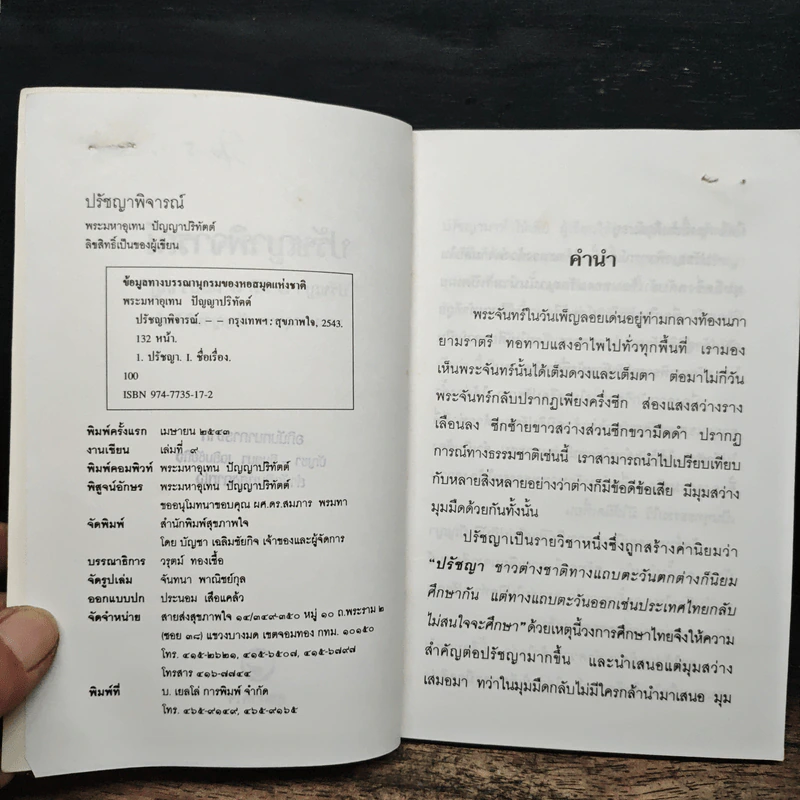 ปรัชญาพิจารณ์
พระมหาอุเทน ปัญญาปริทัตต์
ลิขสิทธิ์เป็นของผู้เขียน
ข้อมูลทางบรรณานุกรมของหอสมุดแห่งชาติ
พระมหาอุเทน ปัญญาปริทัตต์
ปรัชญาพิจารณ์. – – กรุงเทพฯ : สุขภาพใจ, 2543.
132 หน้า.
1. ปรัชญา. I. ชื่อเรื่อง.
100
ISBN 974-7735-17-2
พิมพ์ครั้งแรก เมษายน ๒๕๔๓
งานเขียน เล่มที่ ๙
พิมพ์คอมพิวท์ พระมหาอุเทน ปัญญาปริทัตต์
พิสูจน์อักษร พระมหาอุเทน ปัญญาปริทัตต์
ขออนุโมทนาขอบคุณ ผศ.ดร.สมภาร พรมทา
จัดพิมพ์ สำนักพิมพ์สุขภาพใจ
โดย บัญชา เฉลิมชัยกิจ เจ้าของและผู้จัดการ
บรรณาธิการ วรุตม์ ทองเชื้อ
จัดรูปเล่ม จันทนา พาณิชย์กุล
ออกแบบปก ประนอม เสือแคล้ว
จัดจำหน่าย สายส่งสุขภาพใจ ๑๔/๓๔๙-๓๕๐ หมู่ ๑๐ ถ.พระราม ๒
(ซอย ๓๘) แขวงบางมด เขตจอมทอง กทม. ๑๐๑๕๐
โทร. ๔๑๕-๒๖๒๑, ๔๑๕-๖๕๐๗, ๔๑๕-๖๗๙๗
โทรสาร ๔๑๖-๗๗๔๔
พิมพ์ที่ บ. เยลโล่ การพิมพ์ จำกัด
โทร. ๔๖๕-๙๑๔๙, ๔๖๕-๙๑๖๕
คำนำ
พระจันทร์ในวันเพ็ญลอยเด่นอยู่ท่ามกลางท้องนภา
ยามราตรี ทอทาบแสงอำไพไปทั่วทุกพื้นที่ เรามอง
เห็นพระจันทร์นั้นได้เต็มดวงและเต็มตา ต่อมาไม่กี่วัน
พระจันทร์กลับปรากฏเพียงครึ่งซีก ส่องแสงสว่างราง
เลือนลง ซีกซ้ายขาวสว่างส่วนซีกขวามืดดำ ปรากฏ
การณ์ทางธรรมชาติเช่นนี้ เราสามารถนำไปเปรียบเทียบ
กับหลายสิ่งหลายอย่างว่าต่างก็มีข้อดีข้อเสีย มีมุมสว่าง
มุมมืดด้วยกันทั้งนั้น
ปรัชญาเป็นรายวิชาหนึ่งซึ่งถูกสร้างค่านิยมว่า
“ปรัชญา ชาวต่างชาติทางแถบตะวันตกต่างก็นิยม
ศึกษากัน แต่ทางแถบตะวันออกเช่นประเทศไทยกลับ
ไม่สนใจจะศึกษา” ด้วยเหตุนี้วงการศึกษาไทยจึงให้ความ
สำคัญต่อปรัชญามากขึ้น และนำเสนอแต่มุมสว่าง
เสมอมา ทว่าในมุมมืดกลับไม่มีใครกล้านำมาเสนอ มุม